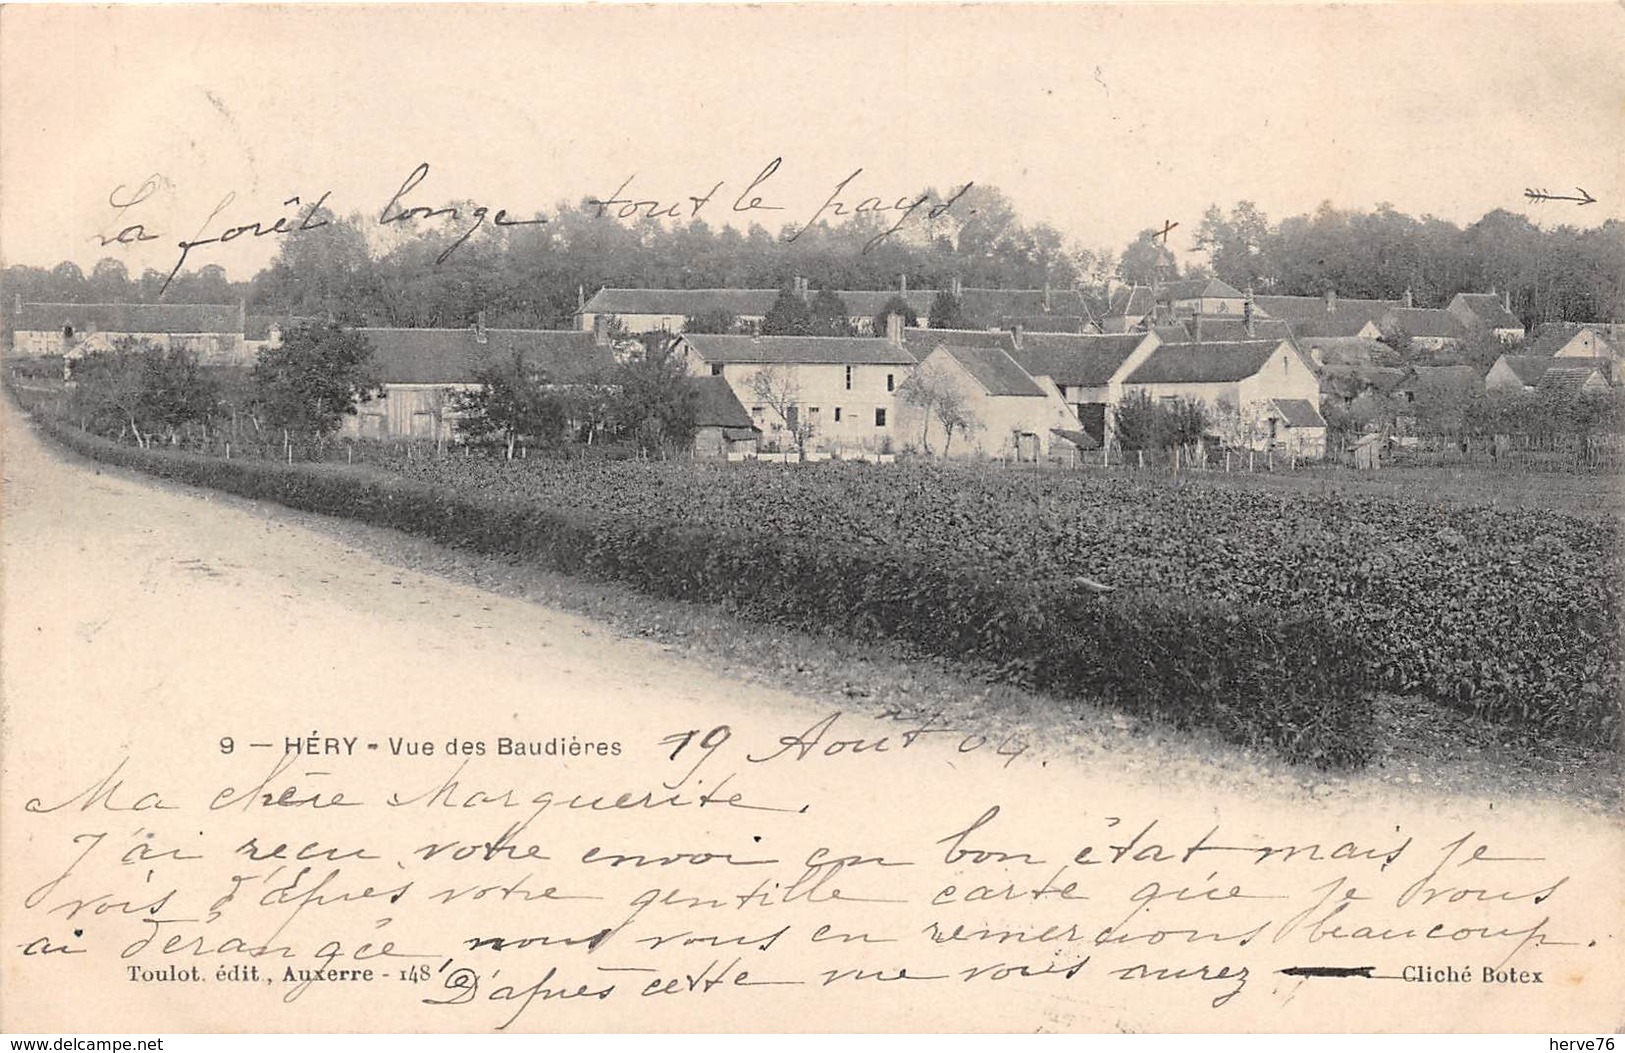 La forêt longe tout le pays.
9 – HÉRY - Vue des Baudières
19 Août 04.
Ma chère Marguerite.
J'ai reçu votre envoi en bon état mais je
vois d'après votre gentille carte que je vous
ai dérangée, nous vous en remercions beaucoup.
D'après cette vue vous aurez
Toulot. édit., Auxerre - 148
Cliché Botex
www.delcampe.net
herve76